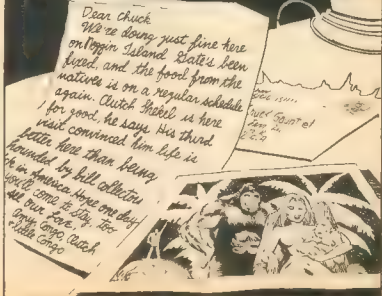 Dear Chuck
We're doing just fine here
on Poggin Island Gate's been
fixed, and the food from the
natives is on a regular schedule
again. Clutch Shekel is here
for good, he says. His third
visit convinced him life is
better here than being
hounded by bill collectors
in America Hope one day
you'll come to stay, too
All our Love
Amy, Congo, Clutch
+ Little Congo